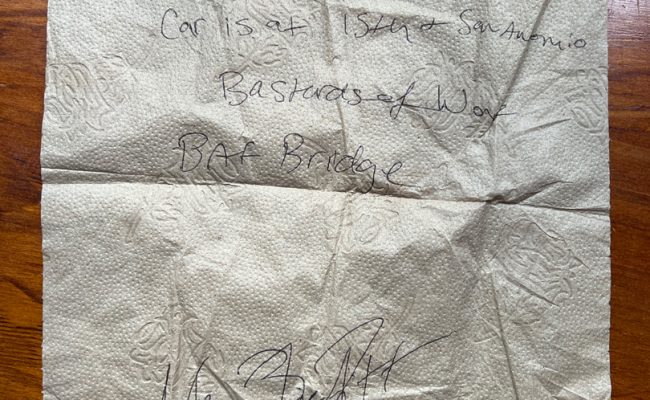 Car is at 15th & San Antonio
Bastards of War
Baf Bridge